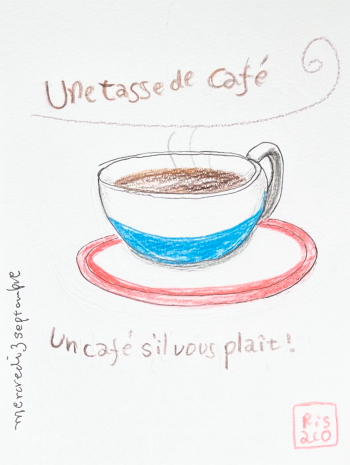 Une tasse de café
mercredi 3 septembre
Un café s'il vous plaît !
Ris
aco